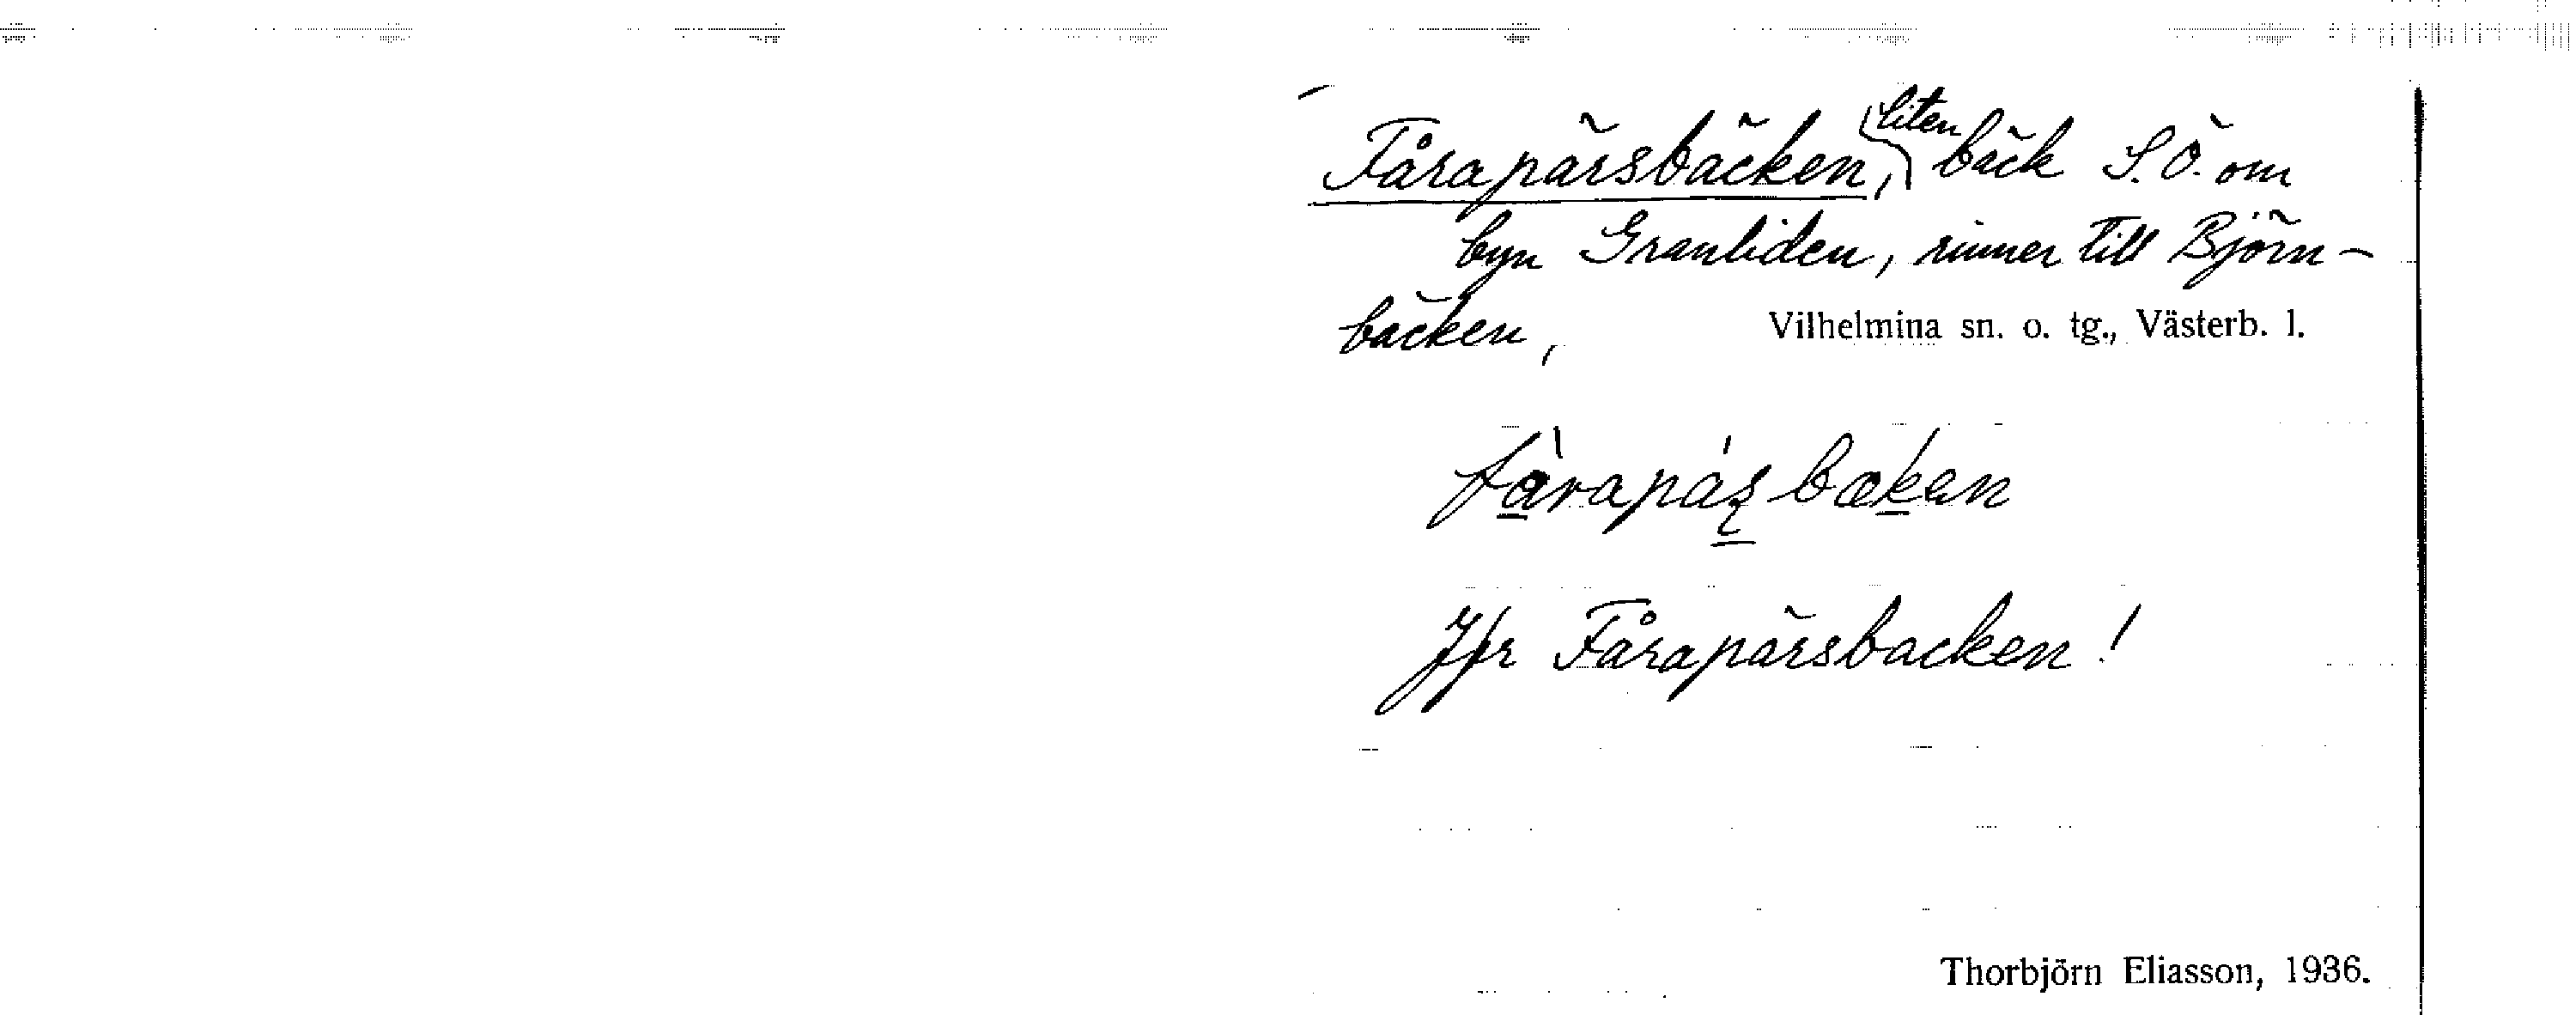 Fårapärsbäcken, liten bäck S.Ö. om
byn Granliden, rinner till Björn-
bäcken, Vilhelmina sn. o. tg., Västerb. l.
Jfr Fårapärsbacken!
Thorbjörn Eliasson, 1936.